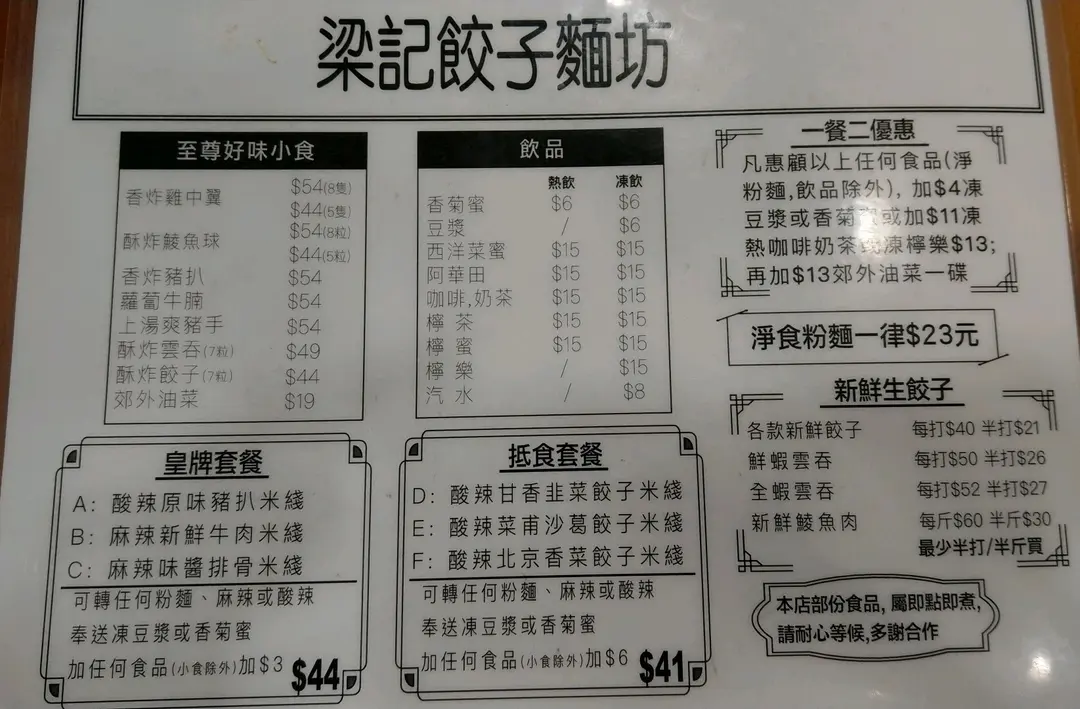 梁記餃子麵坊
至尊好味小食
香炸雞中翼 $54(8隻)
$44(5隻)
酥炸鯪魚球 $54(8粒)
$44(5粒)
香炸豬扒 $54
蘿蔔牛腩 $54
上湯爽豬手 $54
酥炸雲吞(7粒) $49
酥炸餃子(7粒) $44
郊外油菜 $19
飲品
熱飲 凍飲
香菊蜜 $6 $6
豆漿 / $6
西洋菜蜜 $15 $15
阿華田 $15 $15
咖啡,奶茶 $15 $15
檸茶 $15 $15
檸蜜 $15 $15
檸樂 / $15
汽水 / $8
一餐二優惠
凡惠顧以上任何食品(淨
粉麵,飲品除外), 加$4凍
豆漿或香菊或加$11凍
熱咖啡奶茶凍檸樂$13;
再加$13郊外油菜一碟
淨食粉麵一律$23元
新鮮生餃子
各款新鮮餃子 每打$40 半打$21
鮮蝦雲吞 每打$50 半打$26
全蝦雲吞 每打$52 半打$27
新鮮鯪魚肉 每斤$60 半斤$30
最少半打/半斤買
本店部份食品, 屬即點即煮,
請耐心等候,多謝合作
皇牌套餐
A: 酸辣原味豬扒米綫
B: 麻辣新鮮牛肉米綫
C: 麻辣味醬排骨米綫
可轉任何粉麵、麻辣或酸辣
奉送凍豆漿或香菊蜜
加任何食品(小食除外)加$3 $44
抵食套餐
D: 酸辣甘香韭菜餃子米綫
E: 酸辣菜甫沙葛餃子米綫
F: 酸辣北京香菜餃子米綫
可轉任何粉麵、麻辣或酸辣
奉送凍豆漿或香菊蜜
加任何食品(小食除外)加$6 $41